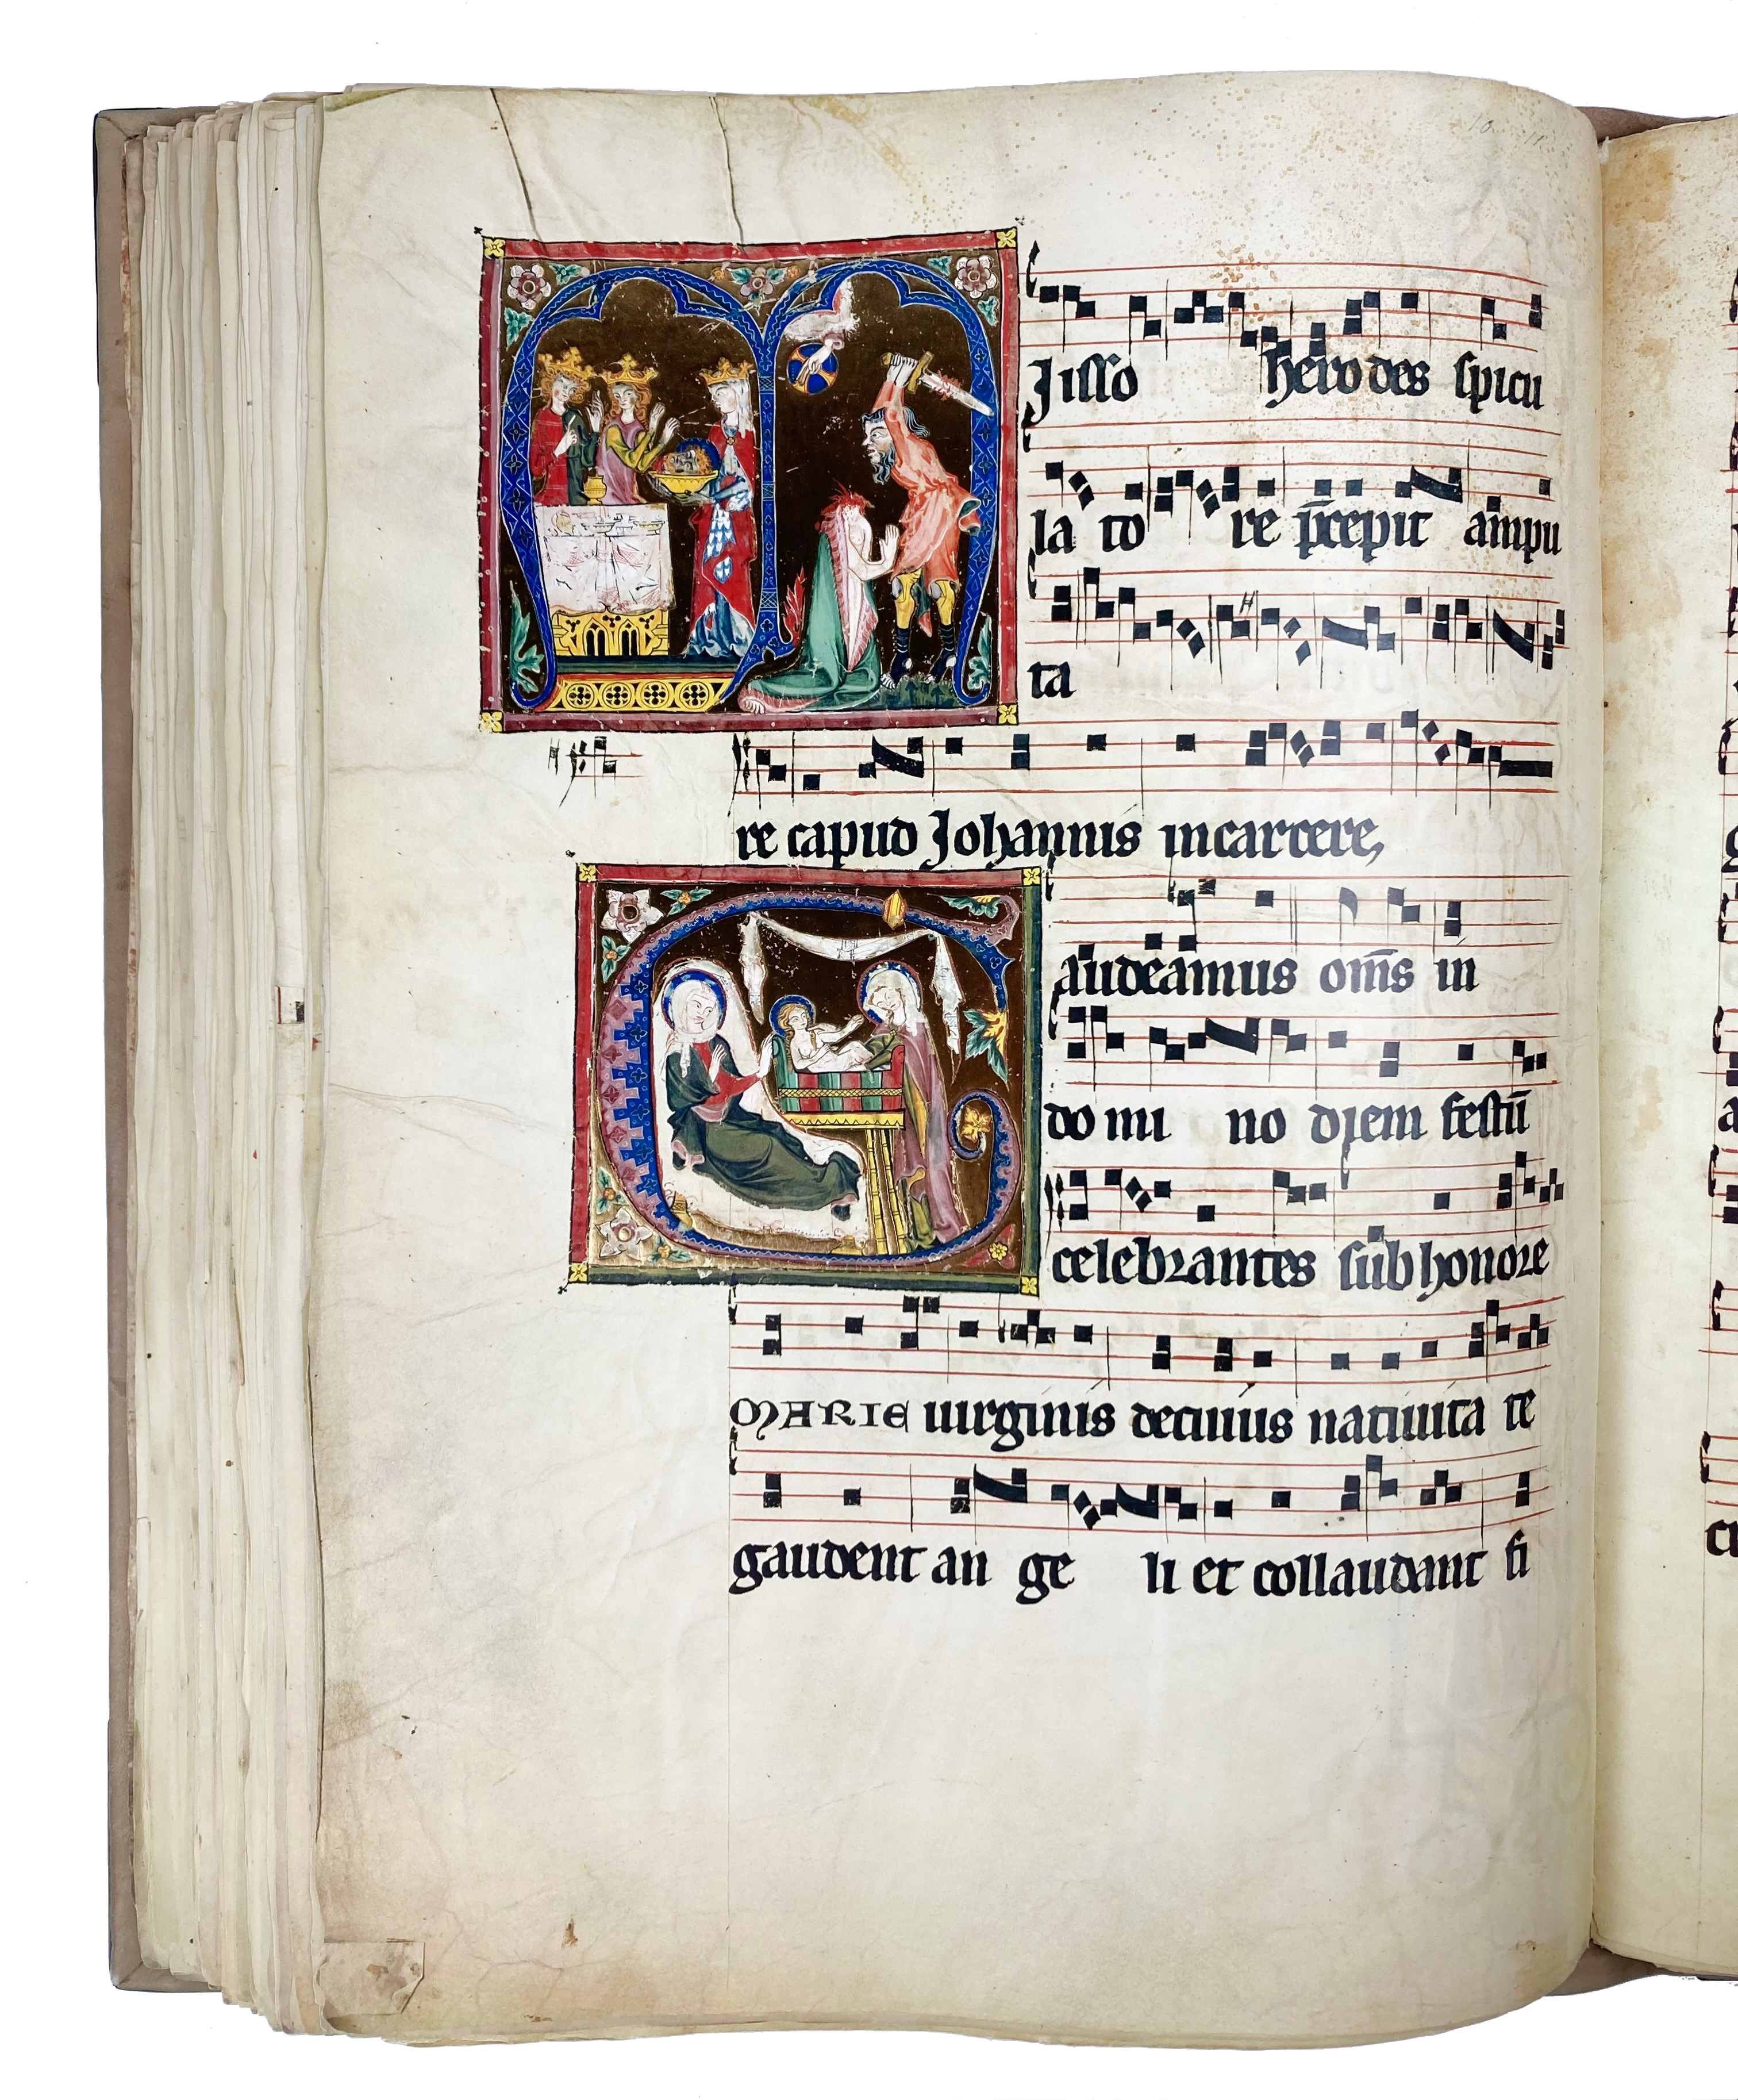 Misso herodes spicu
la to re p̄cepit ampu
ta
re capud Johannis incarcere,
Gaudeamus om̄s in
do mi no diem festū
celebrantes sub honore
MARIE uirginis decuiuis natiuita te
gaudent an ge li et collaudant fi